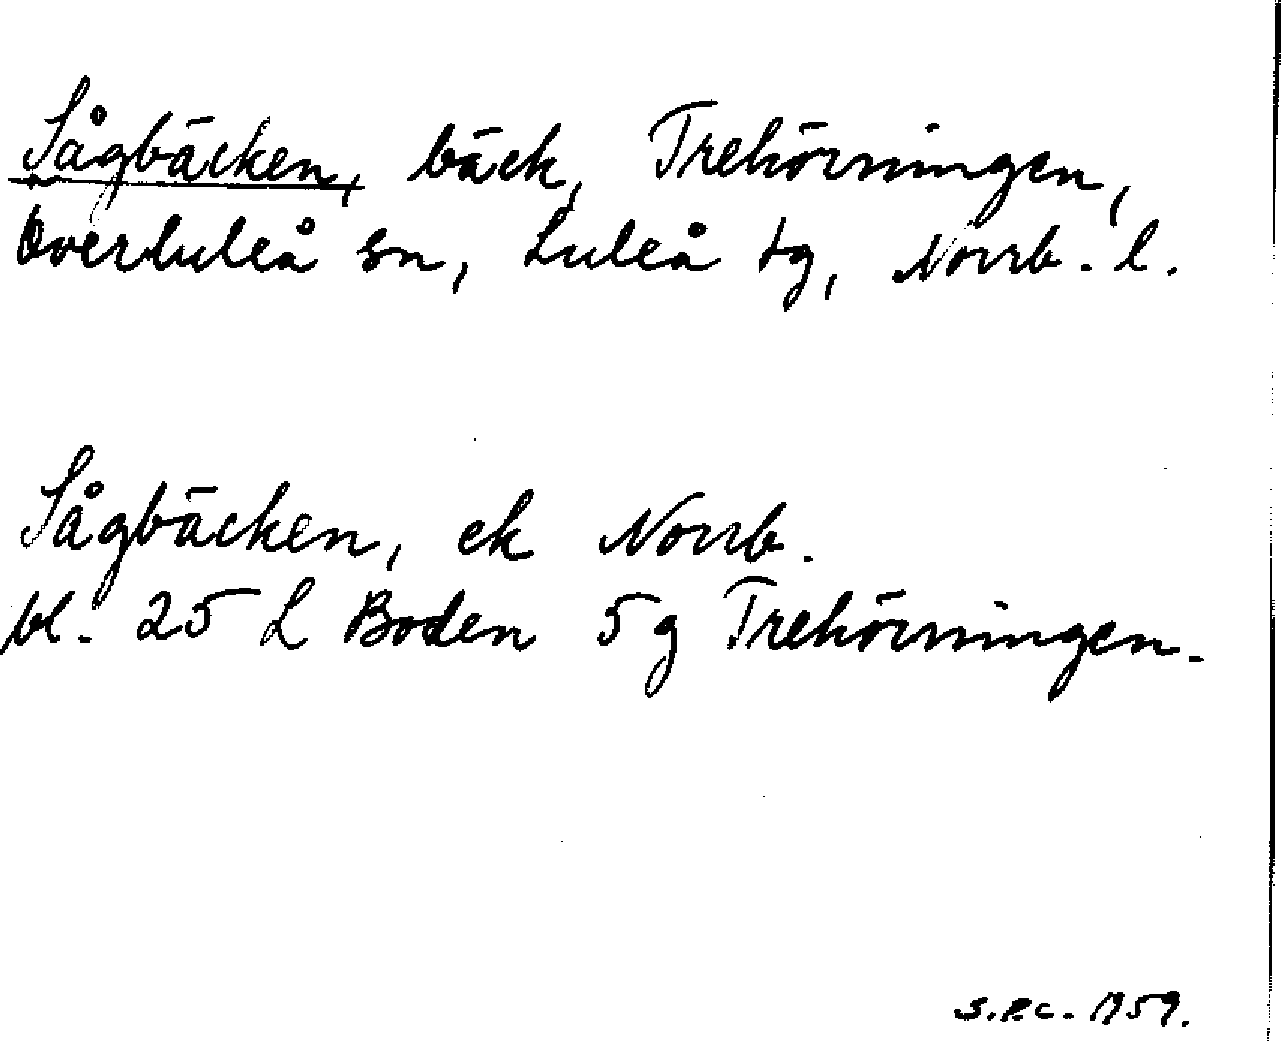 Sågbäcken, bäck, Trehörningen,
Överluleå sn, Luleå tg, Norrb. l.
Sågbäcken, ek Norrb.
bl. 25 L Boden 5g Trehörningen.
S.P.C. 1959.